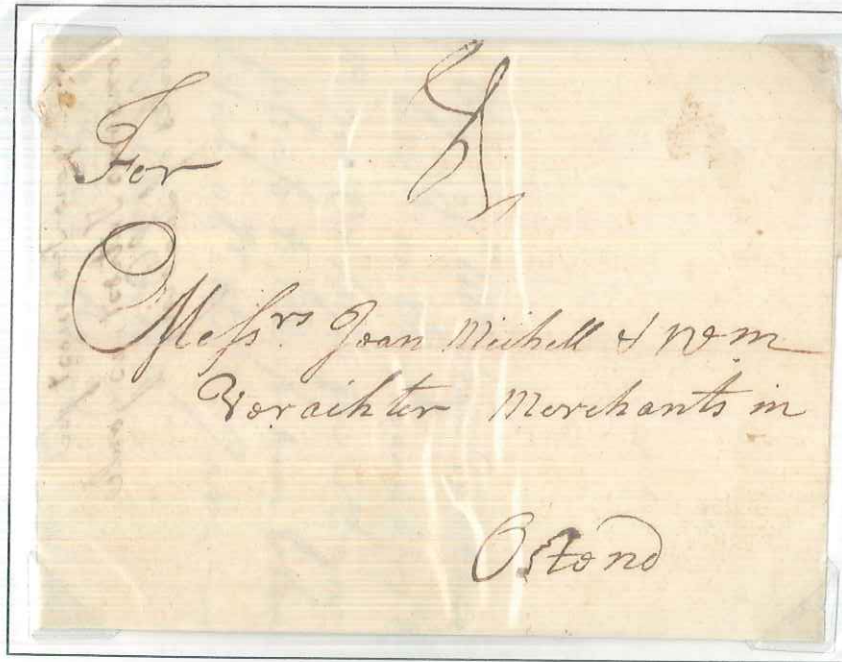 For
Messrs. Joan Michell & Wm
Verachter Merchants in
Ostend